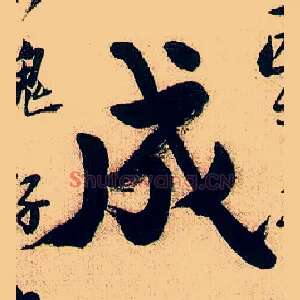 成
鬼
子
Shufawang.CN